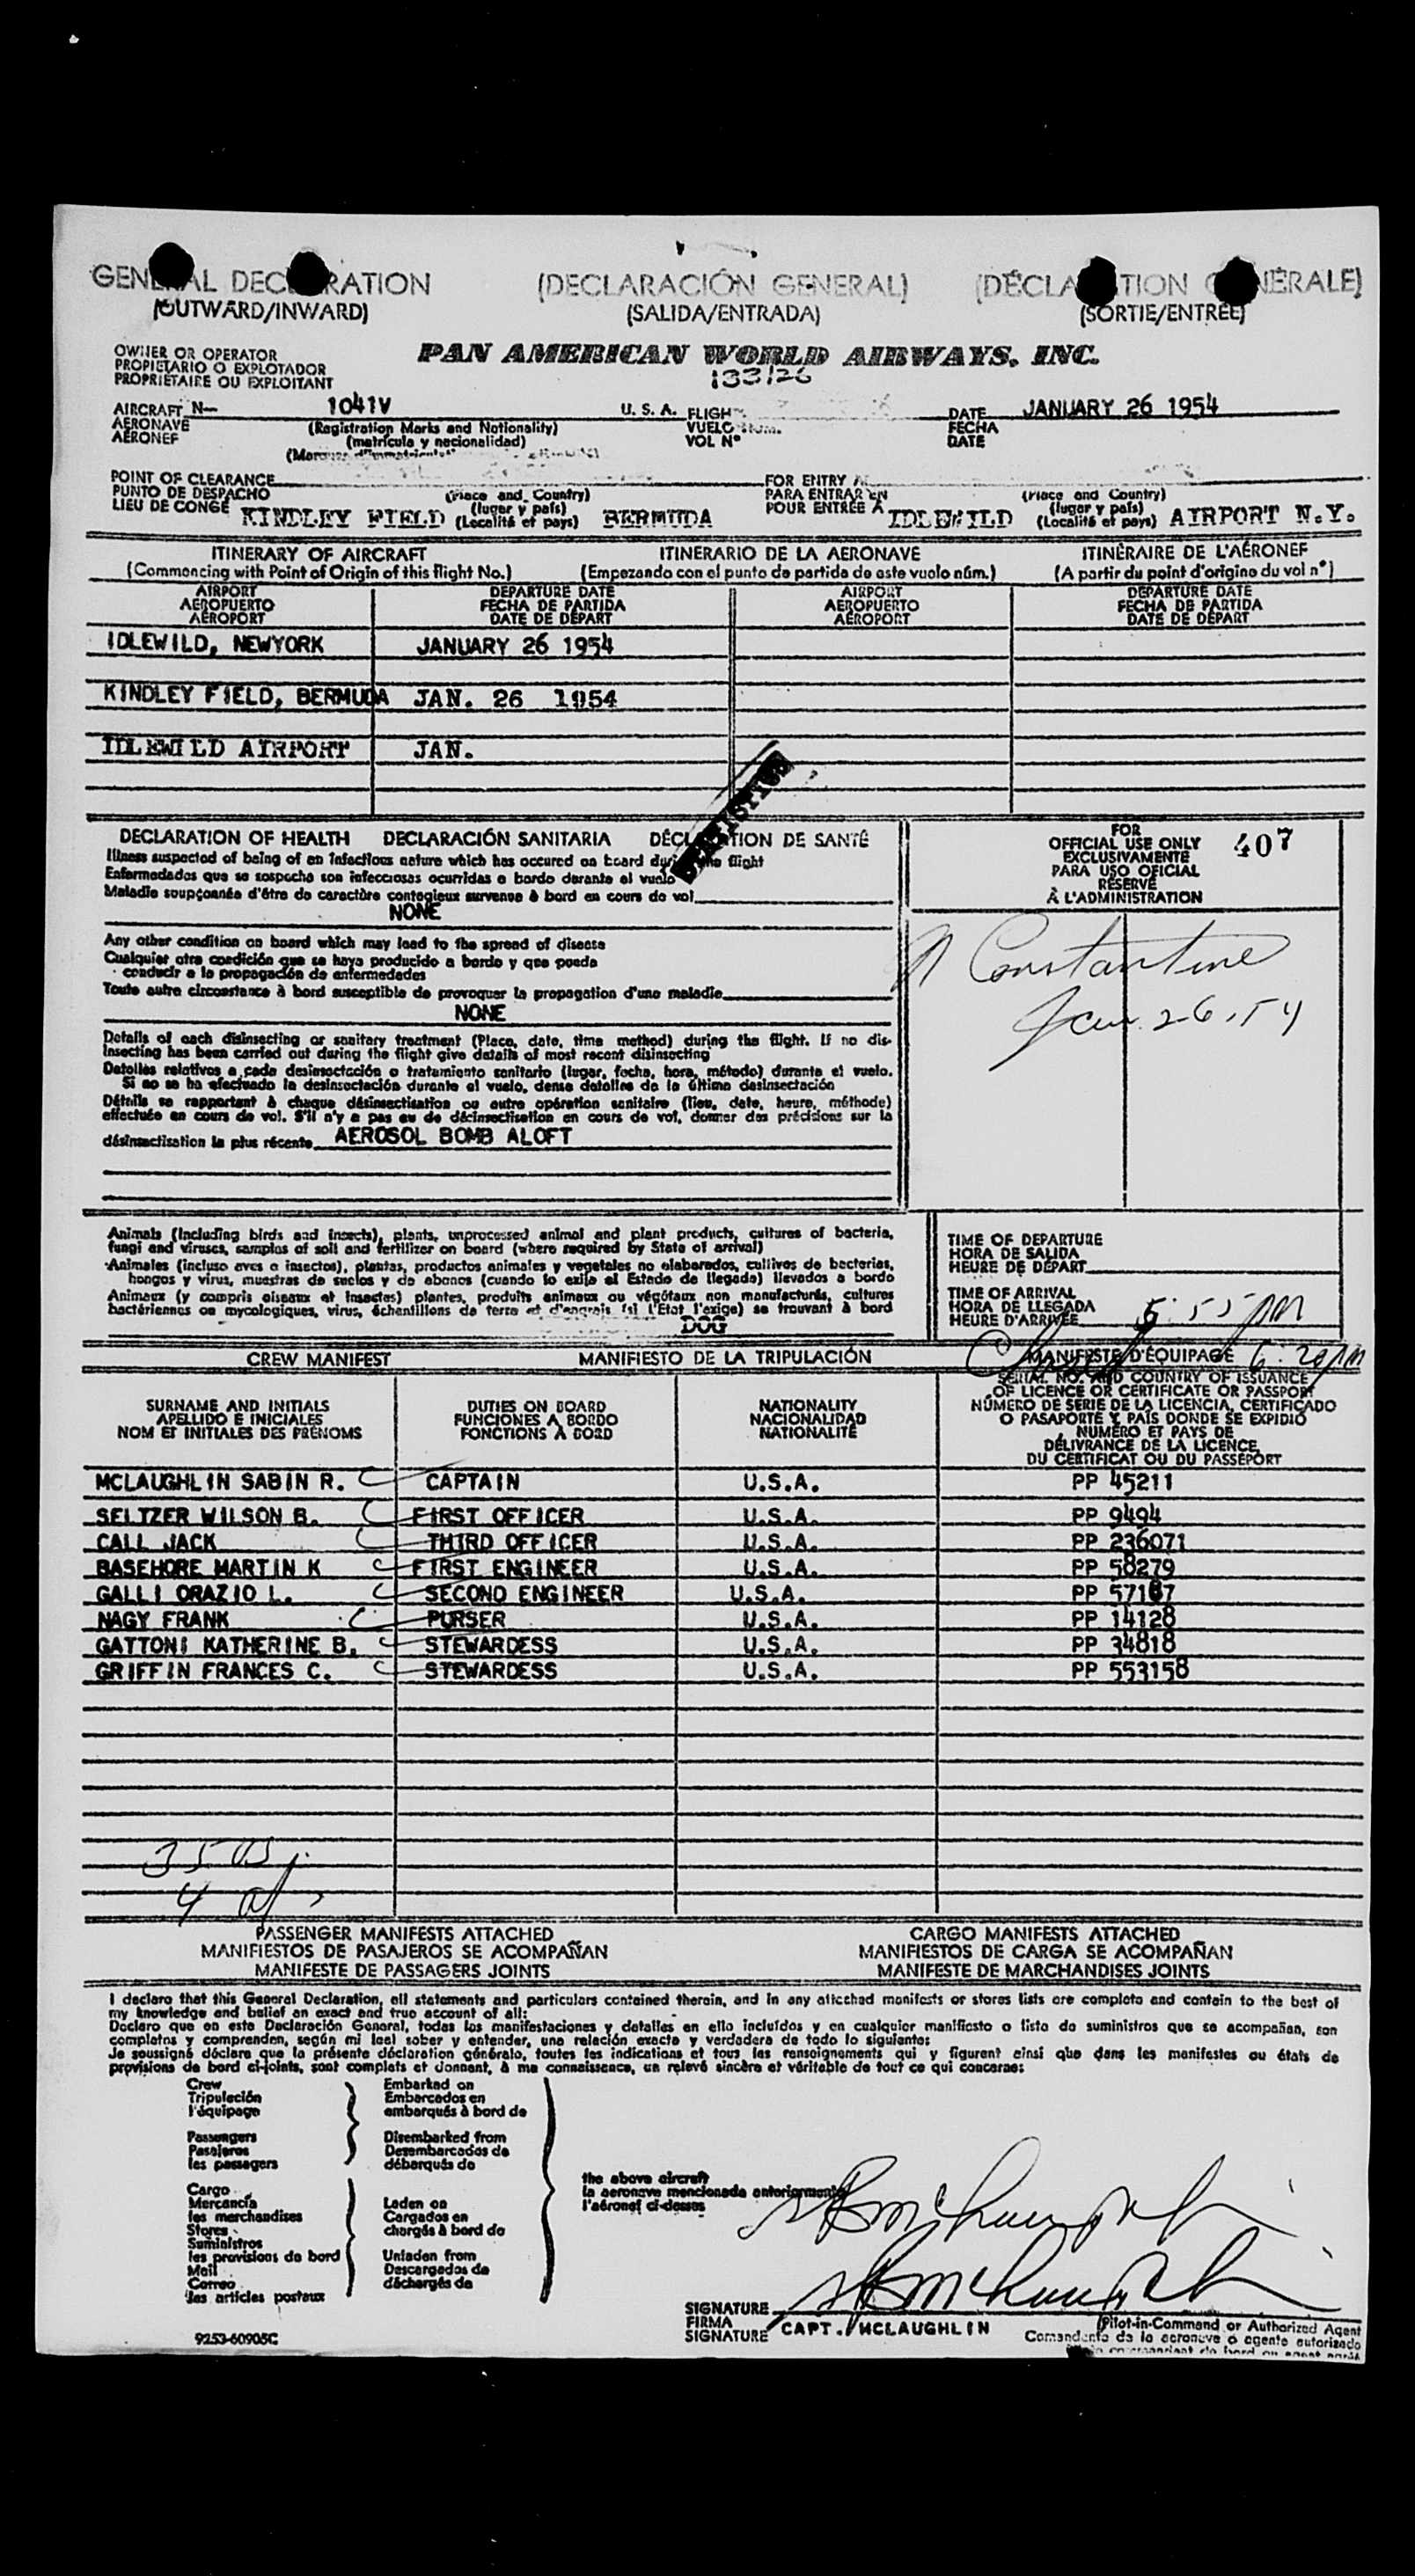 GENERAL DECLARATION (DECLARACIÓN GENERAL) (DÉCLARATION GÉNÉRALE)
(OUTWARD/INWARD) (SALIDA/ENTRADA) (SORTIE/ENTRÉE)
OWNER OR OPERATOR
PROPIETARIO O EXPLOTADOR
PROPRIÉTAIRE OU EXPLOITANT
PAN AMERICAN WORLD AIRWAYS, INC.
133/26
AIRCRAFT N— 1041V U. S. A. FLIGHT DATE JANUARY 26 1954
AERONAVE (Registration Marks and Nationality) VUELO Núm. FECHA
AÉRONEF (matrícula y nacionalidad) VOL N° DATE
POINT OF CLEARANCE FOR ENTRY
PUNTO DE DESPACHO (Place and Country) PARA ENTRAR EN (Place and Country)
LIEU DE CONGÉ KINDLEY FIELD (lugar y país) (Localité et pays) BERMUDA POUR ENTRÉE À IDLEWILD (lugar y país) (Localité et pays) AIRPORT N.Y.
ITINERARY OF AIRCRAFT ITINERARIO DE LA AERONAVE ITINÉRAIRE DE L'AÉRONEF
(Commencing with Point of Origin of this flight No.) (Empezando con el punto de partida de este vuelo núm.) (A partir du point d'origine du vol n°)
AIRPORT DEPARTURE DATE AIRPORT DEPARTURE DATE
AEROPUERTO FECHA DE PARTIDA AEROPUERTO FECHA DE PARTIDA
AÉROPORT DATE DE DÉPART AÉROPORT DATE DE DÉPART
IDLEWILD, NEWYORK JANUARY 26 1954
KINDLEY FIELD, BERMUDA JAN. 26 1954
IDLEWILD AIRPORT JAN.
STATISTICS
DECLARATION OF HEALTH DECLARACIÓN SANITARIA DÉCLARATION DE SANTÉ
Illness suspected of being of an infectious nature which has occured on board during the flight
Enfermedades que se sospecha son infecciosas ocurridas a bordo durante el vuelo
Maladie soupçonnée d'être de caractère contagieux survenue à bord en cours de vol
NONE
Any other condition on board which may lead to the spread of disease
Cualquier otra condición que se haya producido a bordo y que pueda
conducir a la propagación de enfermedades
Toute autre circonstance à bord susceptible de provoquer la propagation d'une maladie
NONE
Details of each disinsecting or sanitary treatment (Place, date, time method) during the flight. If no dis-
insecting has been carried out during the flight give details of most recent disinsecting
Detalles relativos a cada desinsectación o tratamiento sanitario (lugar, fecha, hora, método) durante el vuelo.
Si no se ha efectuado la desinsectación durante el vuelo, dense detalles de la última desinsectación
Détails se rapportant à chaque désinsectisation ou autre opération sanitaire (lieu, date, heure, méthode)
effectuée en cours de vol. S'il n'y a pas eu de désinsectisation en cours de vol, donner des précisions sur la
désinsectisation la plus récente AEROSOL BOMB ALOFT
FOR
OFFICIAL USE ONLY
EXCLUSIVAMENTE
PARA USO OFICIAL
RÉSERVÉ
À L'ADMINISTRATION
407
Constantine
Jan. 26, 54
Animals (including birds and insects), plants, unprocessed animal and plant products, cultures of bacteria,
fungi and viruses, samples of soil and fertilizer on board (where required by State of arrival)
Animales (incluso aves e insectos), plantas, productos animales y vegetales no elaborados, cultivos de bacterias,
hongos y virus, muestras de suelos y de abonos (cuando lo exija el Estado de llegada) llevados a bordo
Animaux (y compris oiseaux et insectes) plantes, produits animaux ou végétaux non manufacturés, cultures
bactériennes ou mycologiques, virus, échantillons de terre et d'engrais (si l'État l'exige) se trouvant à bord
DOG
TIME OF DEPARTURE
HORA DE SALIDA
HEURE DE DÉPART
TIME OF ARRIVAL
HORA DE LLEGADA
HEURE D'ARRIVÉE 5:55 PM
CREW MANIFEST MANIFIESTO DE LA TRIPULACIÓN MANIFESTE D'ÉQUIPAGE 6:20 PM
SURNAME AND INITIALS
APELLIDO E INICIALES
NOM ET INITIALES DES PRÉNOMS
DUTIES ON BOARD
FUNCIONES A BORDO
FONCTIONS À BORD
NATIONALITY
NACIONALIDAD
NATIONALITÉ
SERIAL NO. AND COUNTRY OF ISSUANCE
OF LICENCE OR CERTIFICATE OR PASSPORT
NÚMERO DE SERIE DE LA LICENCIA, CERTIFICADO
O PASAPORTE Y PAÍS DONDE SE EXPIDIÓ
NUMÉRO ET PAYS DE
DÉLIVRANCE DE LA LICENCE,
DU CERTIFICAT OU DU PASSEPORT
MCLAUGHLIN SABIN R. CAPTAIN U.S.A. PP 45211
SELTZER WILSON B. FIRST OFFICER U.S.A. PP 9494
CALL JACK THIRD OFFICER U.S.A. PP 236071
BASEHORE MARTIN K FIRST ENGINEER U.S.A. PP 58279
GALLI ORAZIO L. SECOND ENGINEER U.S.A. PP 57187
NAGY FRANK PURSER U.S.A. PP 14128
GATTONI KATHERINE B. STEWARDESS U.S.A. PP 34818
GRIFFIN FRANCES C. STEWARDESS U.S.A. PP 553158
35 US
4
PASSENGER MANIFESTS ATTACHED CARGO MANIFESTS ATTACHED
MANIFIESTOS DE PASAJEROS SE ACOMPAÑAN MANIFIESTOS DE CARGA SE ACOMPAÑAN
MANIFESTE DE PASSAGERS JOINTS MANIFESTE DE MARCHANDISES JOINTS
I declare that this General Declaration, all statements and particulars contained therein, and in any attached manifests or stores lists are complete and contain to the best of
my knowledge and belief an exact and true account of all:
Declaro que en esta Declaración General, todas las manifestaciones y detalles en ella incluídos y en cualquier manifiesto o lista de suministros que se acompañan, son
completos y comprenden, según mi leal saber y entender, una relación exacta y verdadera de todo lo siguiente:
Je soussigné déclare que la présente déclaration générale, toutes les indications et tous les renseignements qui y figurent ainsi que dans les manifestes ou états de
provisions de bord ci-joints, sont complets et donnent, à ma connaissance, un relevé sincère et véritable de tout ce qui concerne:
Crew Embarked on
Tripulación Embarcados en
l'équipage embarqués à bord de
Passengers Disembarked from
Pasajeros Desembarcados de
les passagers débarqués de
Cargo
Mercancía Laden on
les marchandises Cargados en
Stores chargés à bord de
Suministros
les provisions de bord Unladen from
Mail Descargados de
Correo déchargés de
les articles postaux
the above aircraft
la aeronave mencionada anteriormente
l'aéronef ci-dessus
SIGNATURE
FIRMA
SIGNATURE
CAPT. MCLAUGHLIN
(Pilot-in-Command or Authorized Agent
Comandante de la aeronave ó agente autorizado
9253-60905C